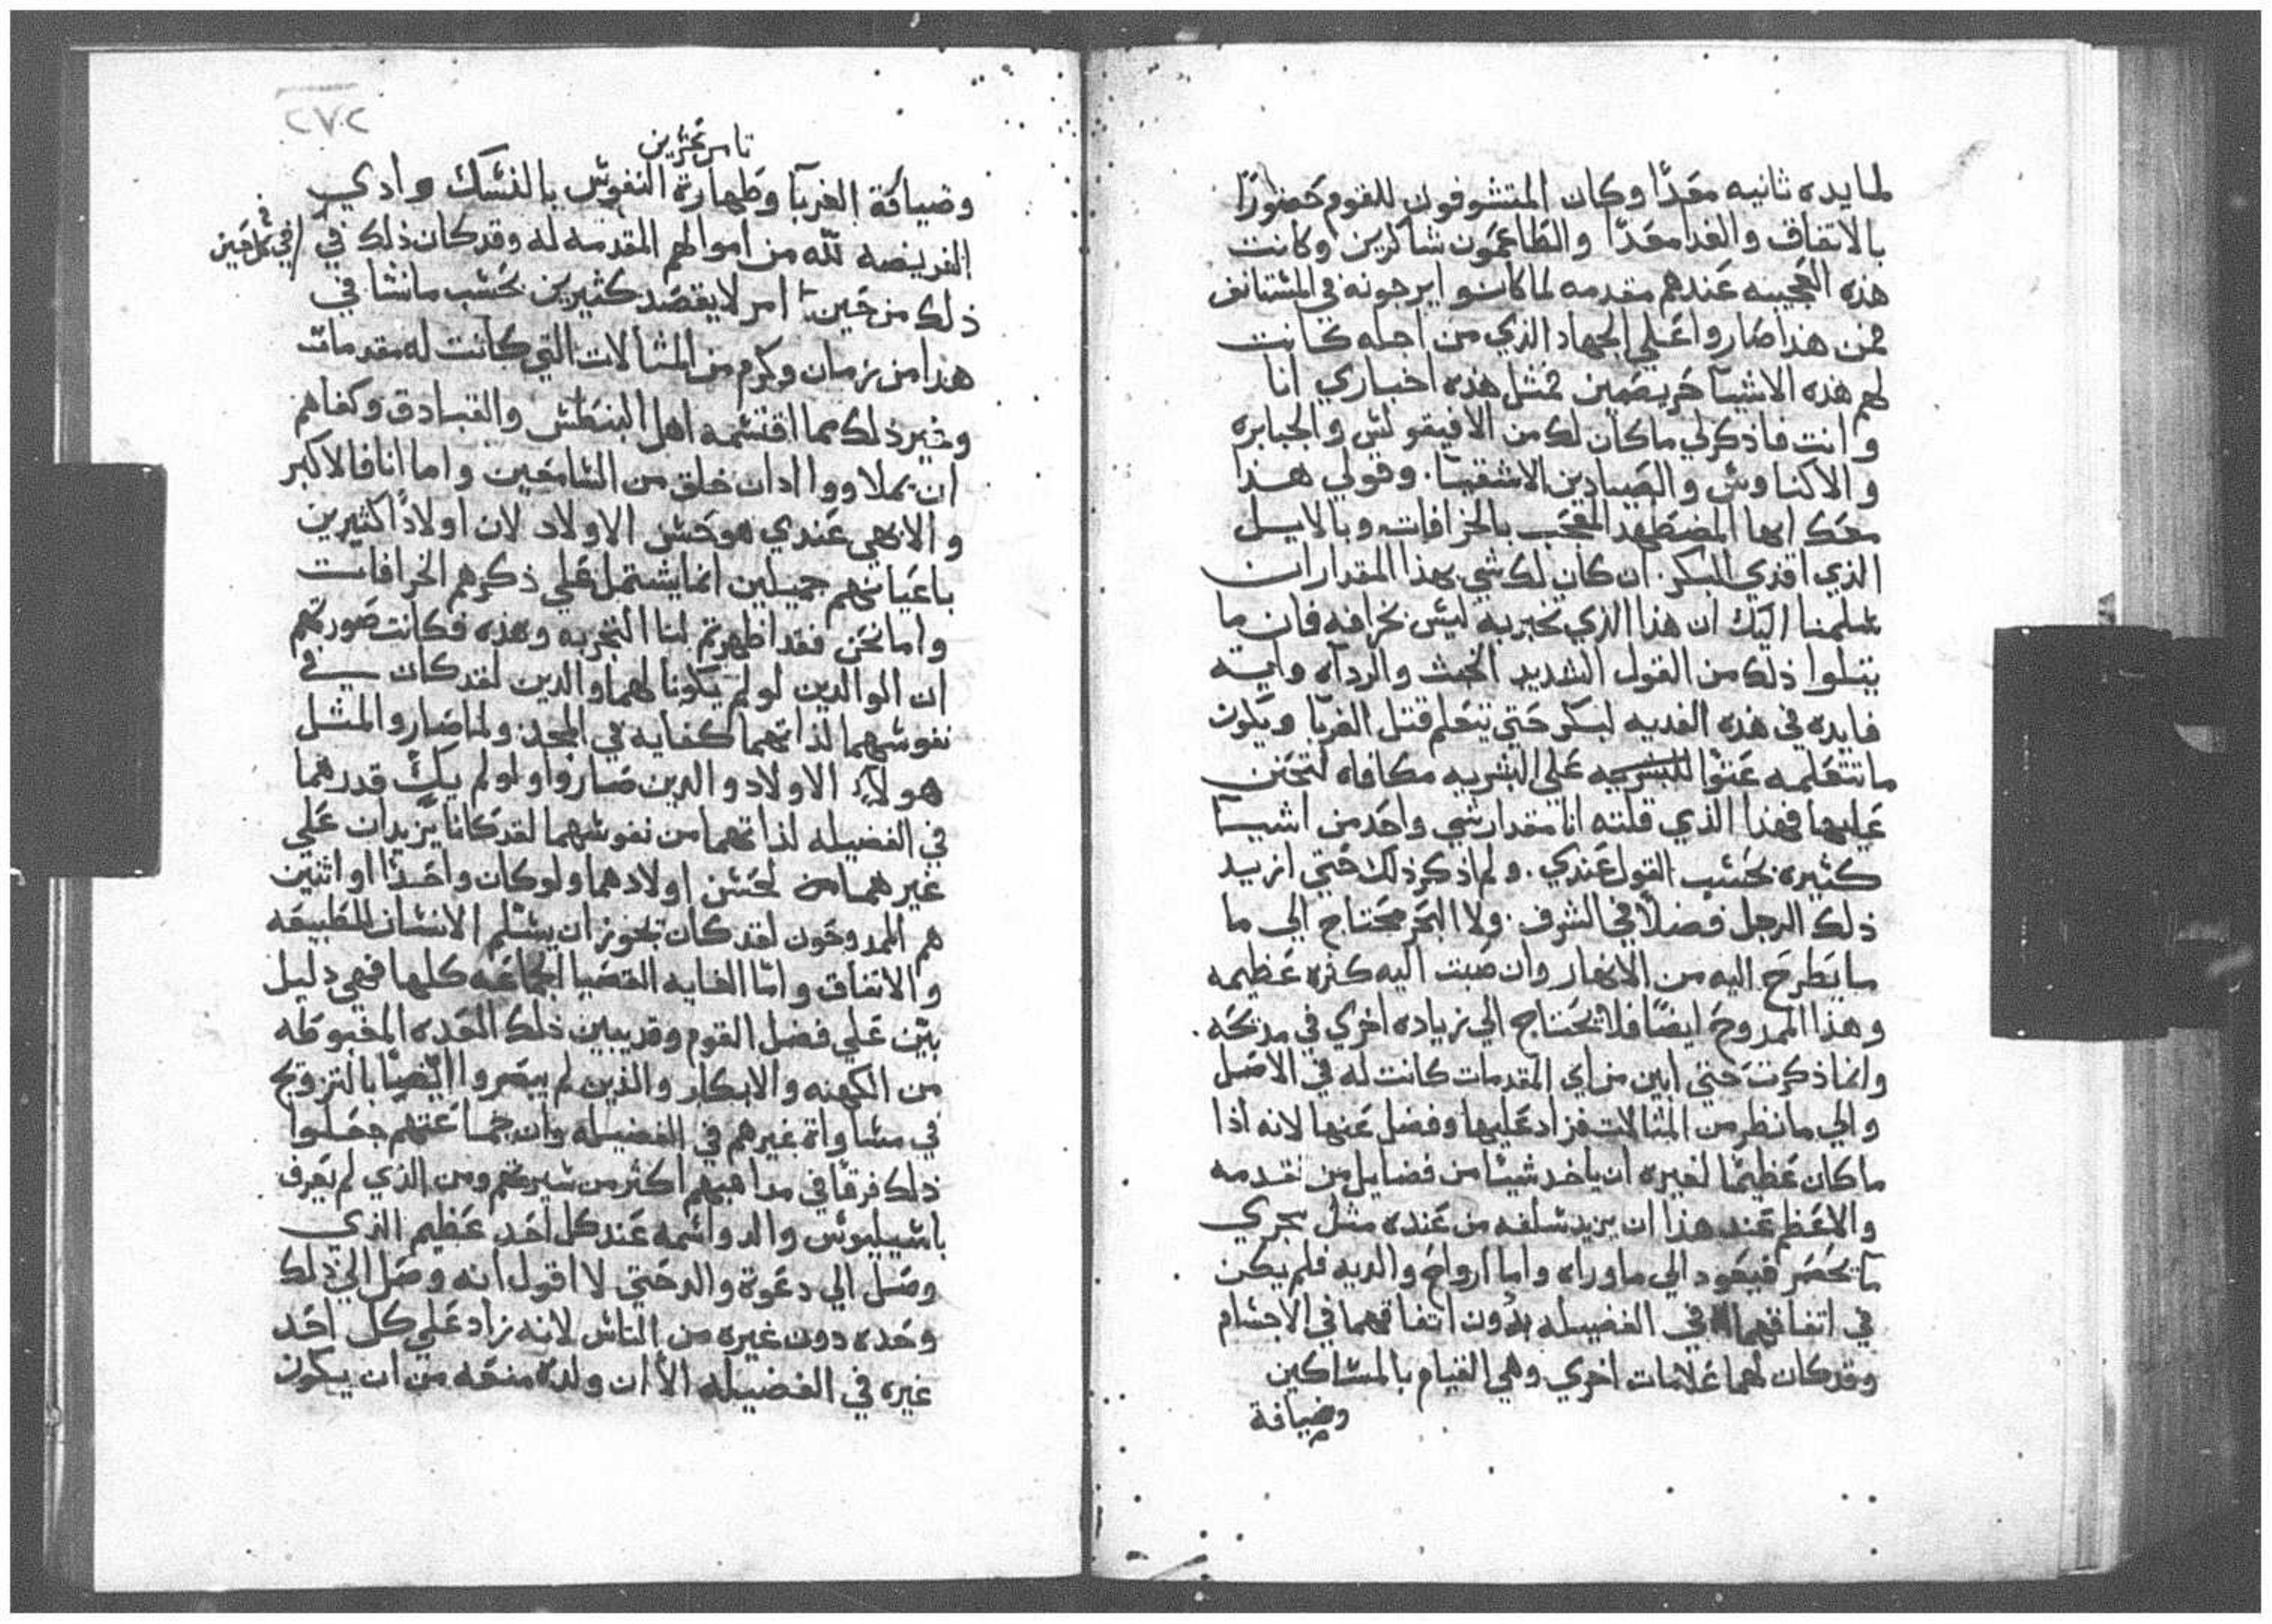 لمايده ثانيه معدًا وكان المتشوفون للقوم حضورًا
بالاتفاق والغدا معدًا والطاعمون شاكرين وكانت
هذه العجيبه عندهم مقدمه لما كانوا يرجونه في المستانف
فمن هذا صاروا علي الجهاد الذي من اجله كانت
لهم هذه الاشيآ حريصين فمثل هذه اخباري انا
وانت فاذكر لي ما كان لك من الافيقولس والجبابره
والاكتاوس والصيادين الاشقيآ. وقولي هذا
معك ايها المضطهد المعجب بالخرافات وبالايل
الذي افدي البكر. ان كان لك شي بهذا المقدار ان
سلمنا اليك ان هذا الذي تخبر به ليس بخرافه فان ما
يتلوا ذلك من القول الشديد الخبث والرداه وايه
فايده في هذه الفديه لبكر حتي تتعلم قتل الغربآ ويكون
ما تتعلمه عتوا للبشريه علي البشريه مكافاه لتحنن
عليها فهذا الذي قلته انا مقدار شي واحد من اشيآ
كثيره بحسب القول عندي. ولم اذكر ذلك حتي ازيد
ذلك الرجل فضلًا في الشرف. ولا البحر محتاج الي ما
ما يطرح اليه من الانهار وان صبت اليه كثره عظيمه
وهذا الممدوح ايضًا فلا يحتاج الي زياده اخري في مدحه.
وانما ذكرت حتي ابين من اي المقدمات كانت له في الاصل
والي ما نظر من المثالات فزاد عليها وفضل عنها لانه اذا
ما كان عظيمًا لغيره ان ياخد شيئا من فضايل من تقدمه
والاعظم عند هذا ان يزيد سلفه من عنده مثل مجري
مآ يحصر فيعود الي ماوراه واما ارواح والديه فلم يكن
في اتفاقهما في الفضيله بدون اتفاقهما في الاجسام
وقد كان لهما علامات اخري وهي القيام بالمساكين
وضيافة
٢٧٢
وضيافة الغربآ وطهارة النفوس بالنسك وادي
الفريضه لله من اموالهم المقدمه له وقد كان ذلك في
في كل حين
ذلك من حين امر لا يقصد كثيرين بحسب ما نشا في
هذا من زمان وكرم من المثالات التي كانت له مقدمات
وغير ذلك مما اقتسمه اهل البنطس والقبادق وكفاهم
ان يملاووا ادان خلق من السامعين واما انا فالاكبر
والابهي عندي هو حسن الاولاد لان اولادًا كثيرين
باعيانهم جميلين انما يشتمل علي ذكرهم الخرافات
واما نحن فقد اظهرتم لنا التجربه وهذه فكانت صورتهم
ان الوالدين لو لم يكونا لهما والدين لقد كان في
نفوسهما لذاتهما كفايه في المجد ولما صاروا لمثل
هولآء الاولاد والدين صاروا ولو لم يك قدرهما
في الفضيله لذاتهما من نفوسهما لقد كانا يزيدان علي
غيرهما من لحسن اولادهما ولو كان واحدًا او اثنين
هم الممدوحون لقد كان يجوز ان يسلم الانسان للطبيعه
والاتفاق وامّا الغايه القضيا الجماعه كلها فهي دليل
بيّن علي فضل القوم وقد يبين ذلك العده المغبوطه
من الكهنه والابكار والذين لم يبصروا ايضًا بالتزويج
في مساواة غيرهم في الفضيله وان جماعتهم جعلوا
ذلك فرقًا في مداهبهم اكثر من سيرتهم ومن الذي لم يعرف
باسيليوس والد واسمه عند كل احد عظيم الذي
وصل الي دعوة والد حتي لا اقول انه وصل الي ذلك
وحده دون غيره من الناس لانه زاد علي كل احد
غيره في الفضيله الا ان ولده منعه من ان يكون